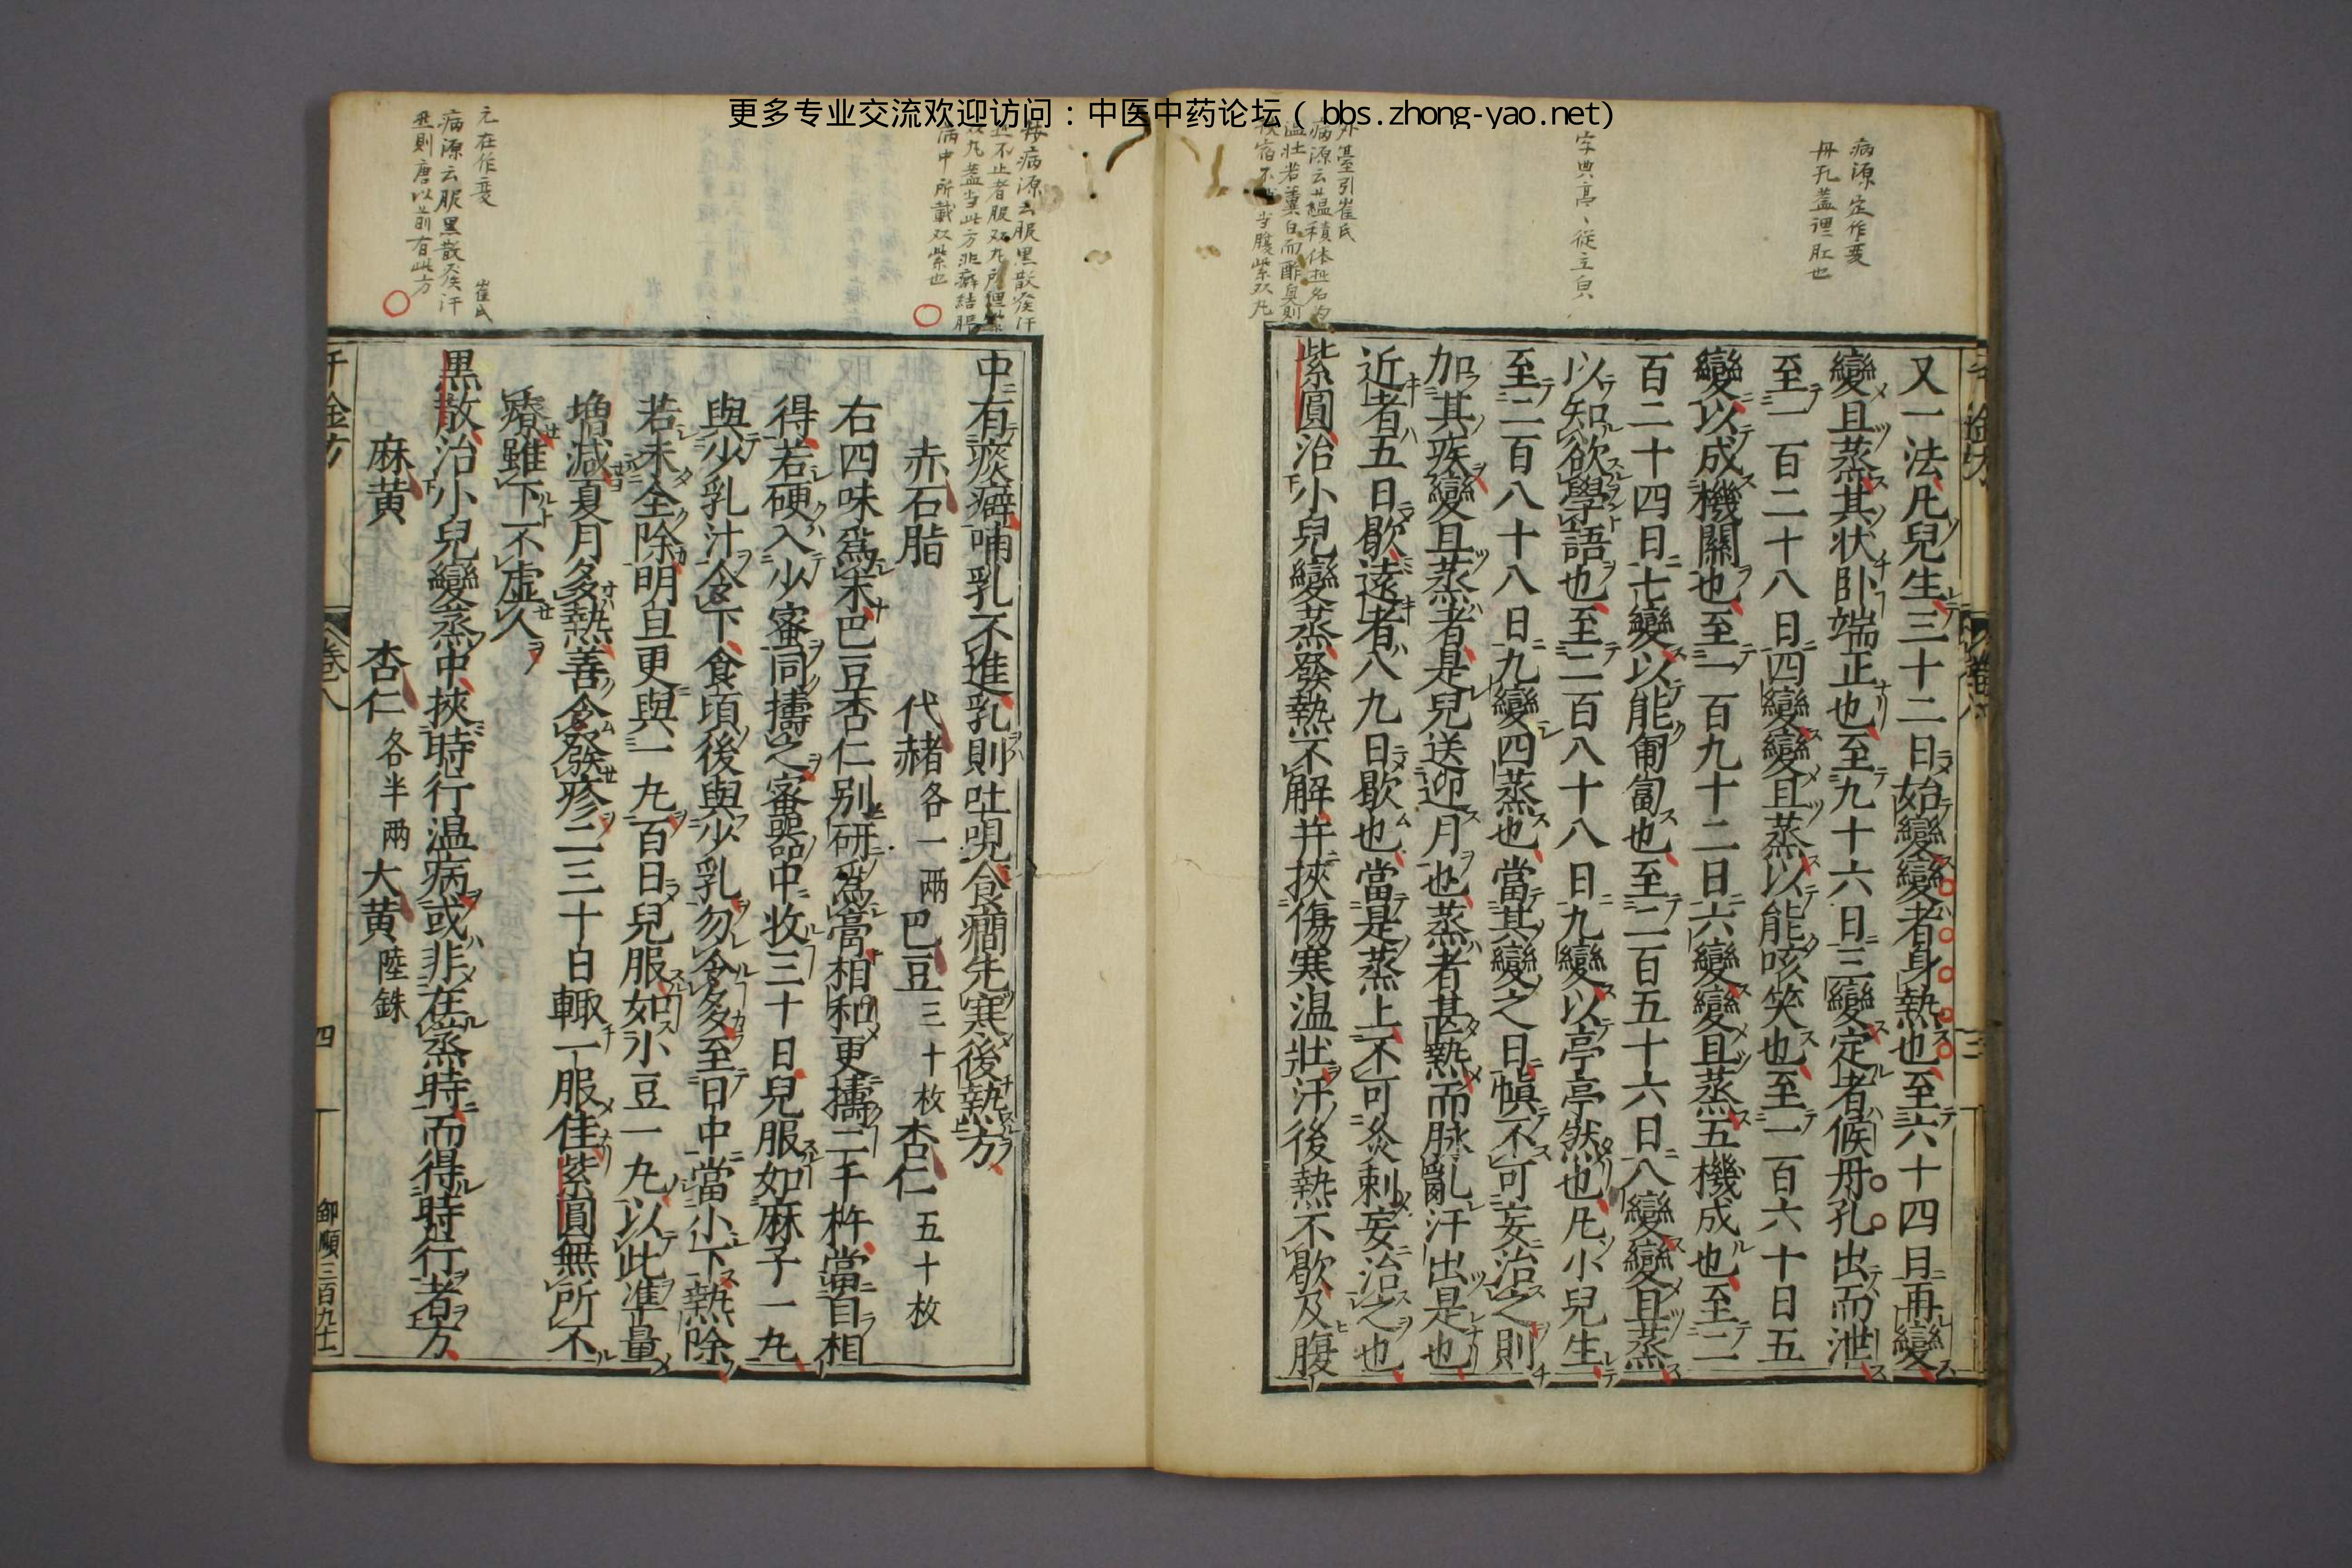 更多专业交流欢迎访问：中医中药论坛（bbs.zhong-yao.net）
病源定作變
丹孔蓋理肛也
字典亭、從立貞
外臺引崔氏
又一法凡兒生三十二日始變變者身熱也至六十四日再變
變且蒸其状卧端正也至九十六日三變定者候丹孔出而泄
至一百二十八日四變變且蒸以能咳笑也至一百六十日五
變以成機關也至一百九十二日六變變且蒸五機成也至二
百二十四日七變以能匍匐也至二百五十六日八變變且蒸
以知欲學語也至二百八十八日九變以亭亭然也凡小兒生
至二百八十八日九變四蒸也當其變之日愼不可妄治之則
加其疾變且蒸者是兒送迎月也蒸者甚熱而脉亂汗出是也
近者五日歇遠者八九日歇也當是蒸上不可灸刺妄治之也
紫圓治小兒變蒸發熱不解并挾傷寒温壯汗後熱不歇及腹
母病源云服黑散發汗
元在作變 崔氏
病源云服黑散發汗
照則唐以前有此方
中有痰癖哺乳不進乳則吐哯食癇先寒後熱方
赤石脂 代赭各一兩 巴豆三十枚 杏仁五十枚
右四味爲末巴豆杏仁别研爲膏相和更擣二千杵當自相
得若硬入少蜜同擣之蜜器中收三十日兒服如麻子一丸
與少乳汁令下食頃後與少乳勿令多至日中當小下熱除
若未全除明旦更與一丸百日兒服如小豆一丸以此準量
増減夏月多熱善令發疹二三十日輙一服佳紫圓無所不
療雖下不虚人
黒散治小兒變蒸中挾時行温病或非在蒸時而得時行者方
麻黄 杏仁各半兩 大黄陸銖
千金方 卷八 四